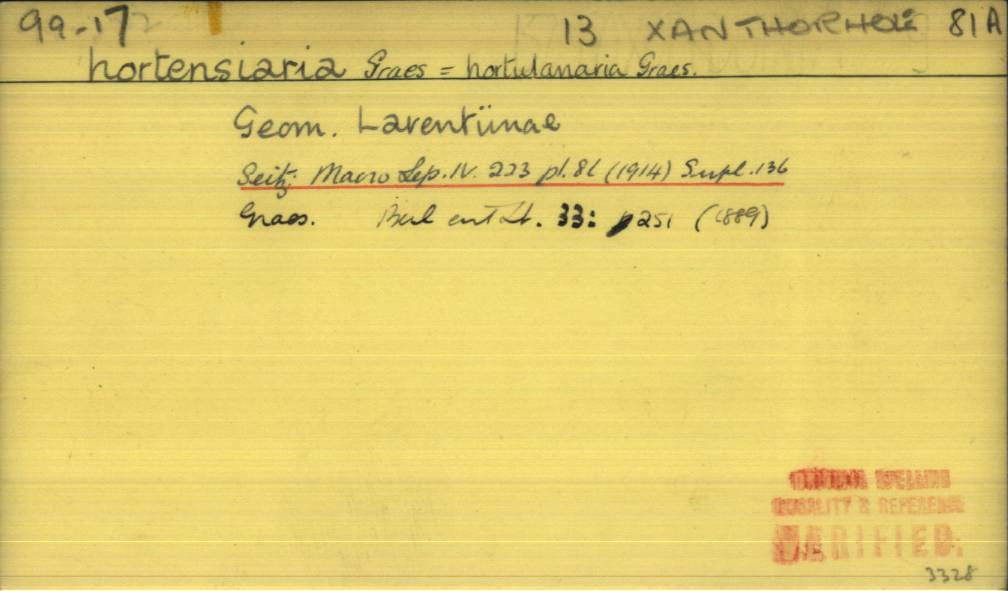 99-17 13 XANTHORHOE 81A
hortensiaria Graes = hortulanaria Graes.
Geom. Larentiinae
Seitz: Macro Lep. IV. 223 pl. 8l (1914) Supl. 136
Graes. Berl ent Zt. 33: p 251 (1889)
SPELLING
& REFERENCE
VERIFIED.
3328